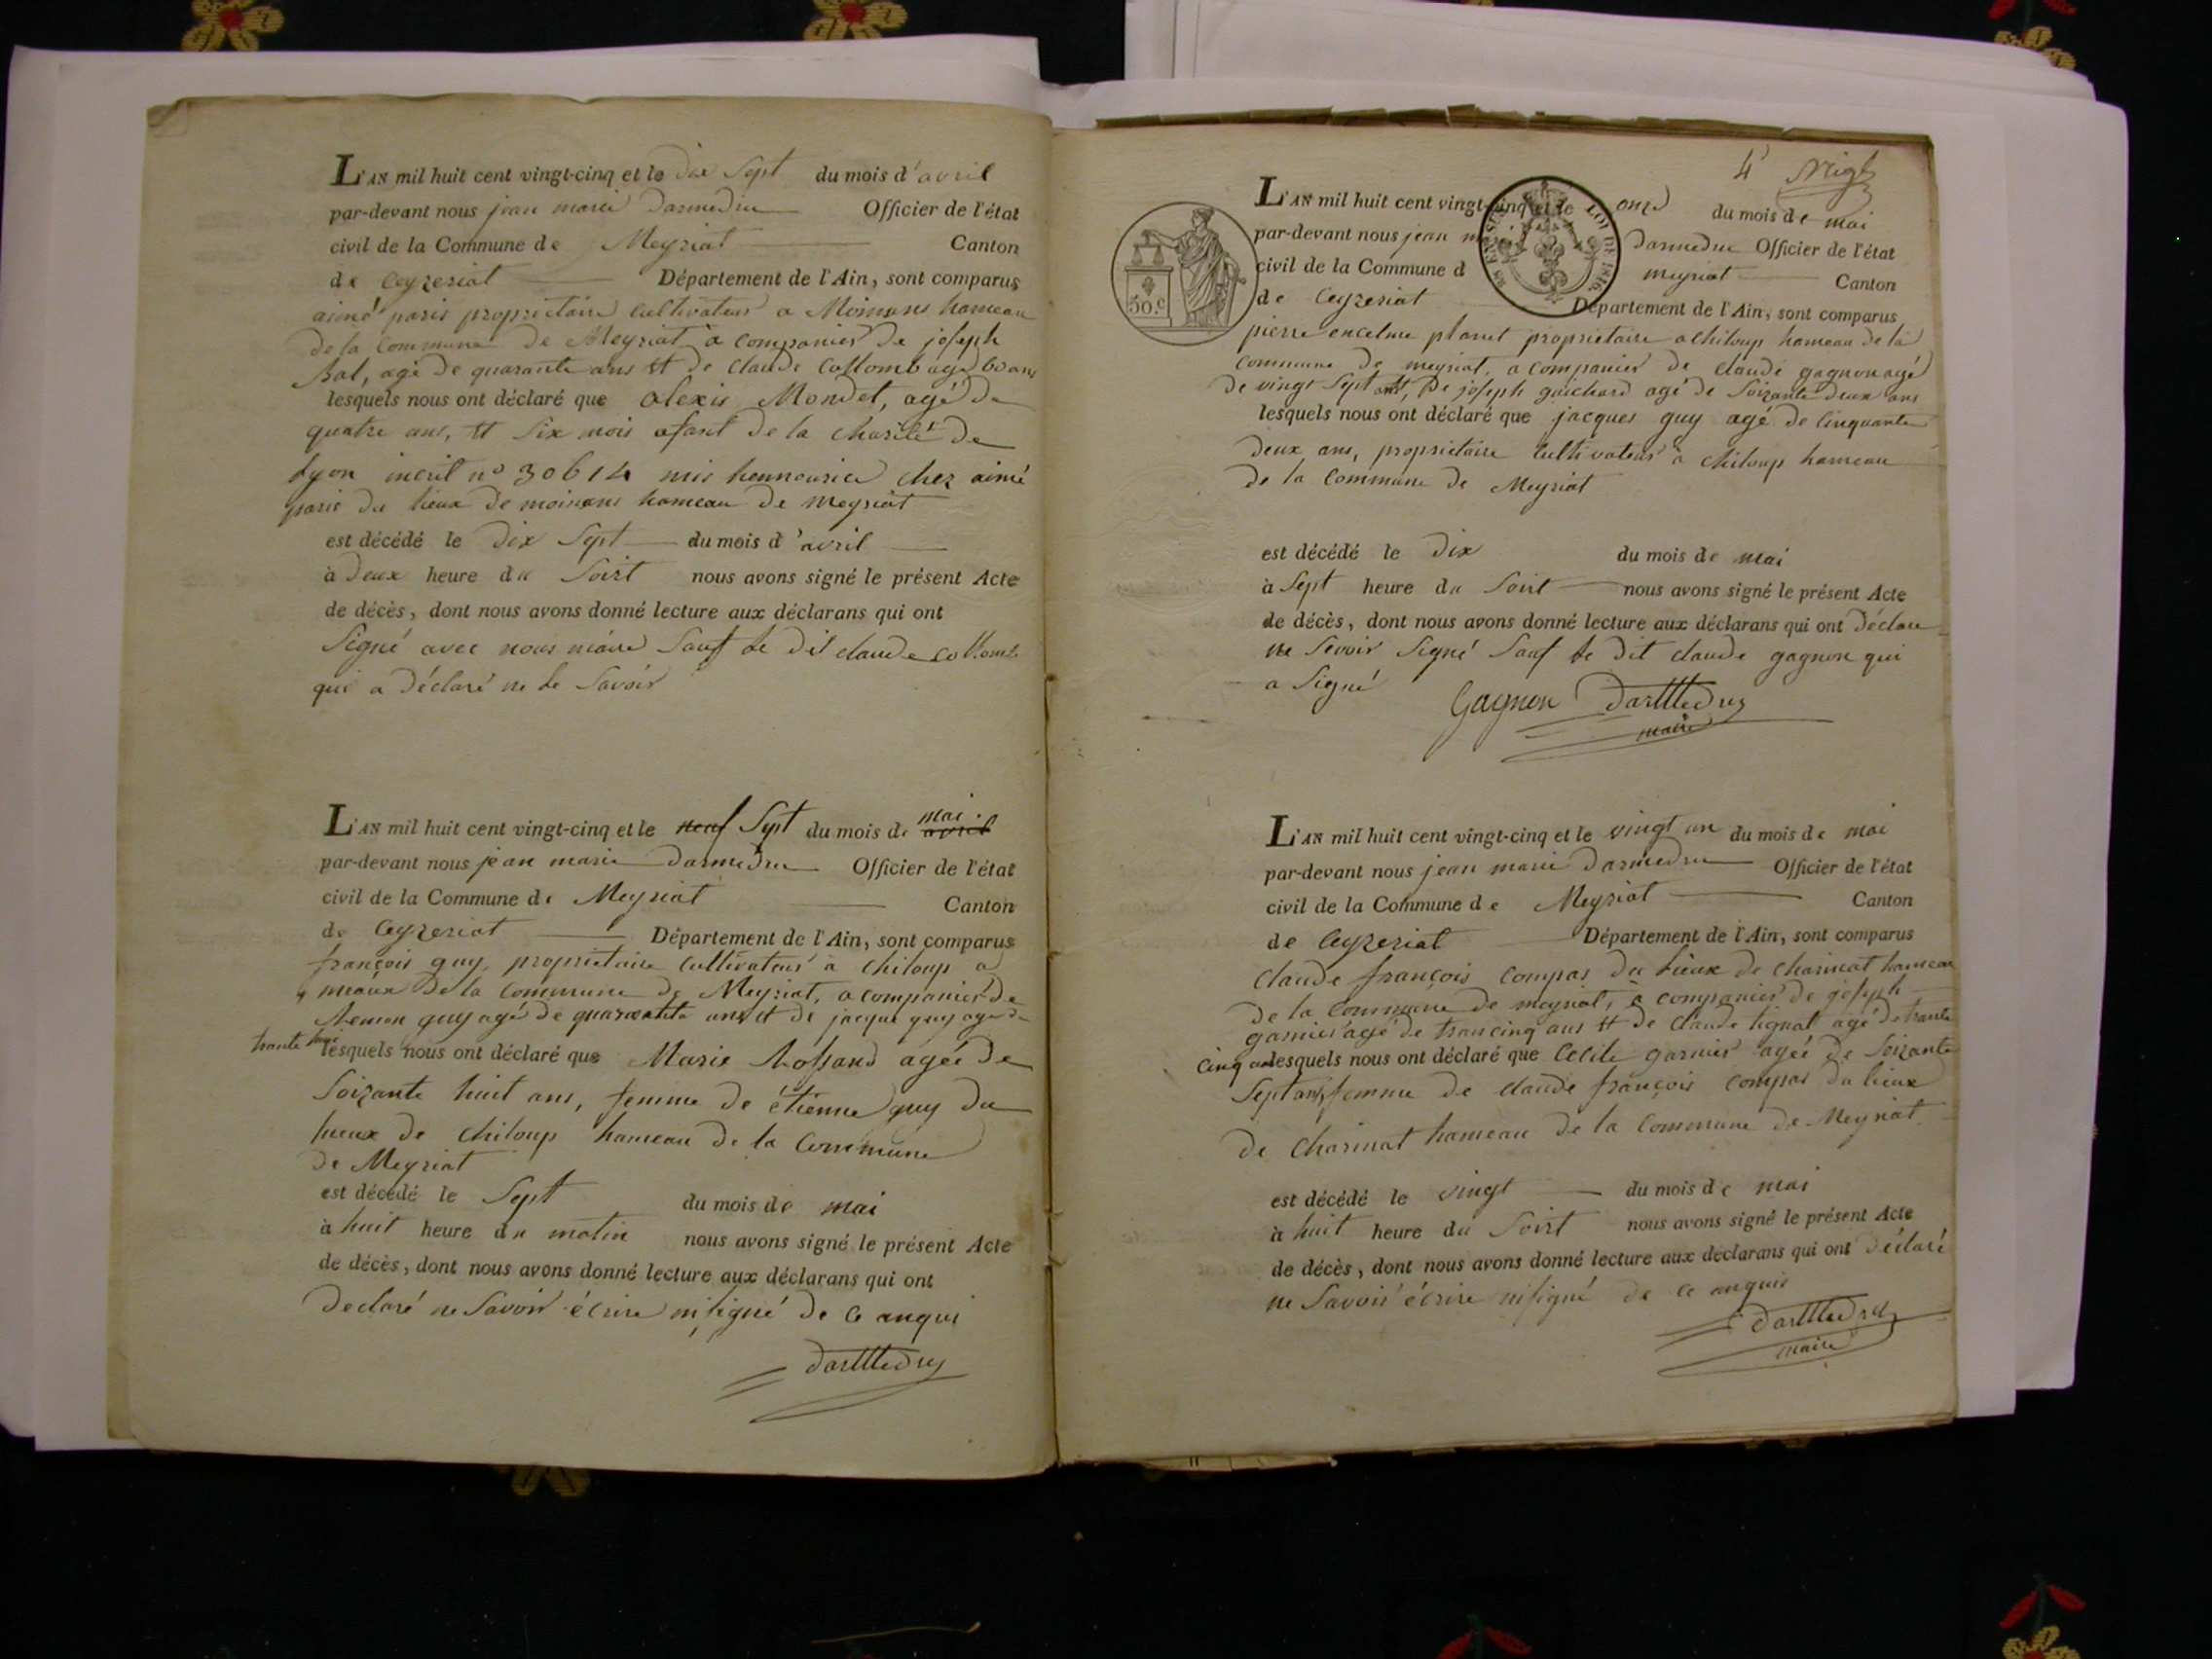 L'AN mil huit cent vingt-cinq et le dix sept du mois d'avril
par-devant nous jean marie Darmedru Officier de l'état
civil de la Commune de Meyriat Canton
de Ceyzeriat Département de l'Ain, sont comparus
aimé paris propriétaire cultivateur a Moinans hameau
de la commune de Meyriat a companier de joseph
agé de quarante ans et de claude Collomb agé 60 ans
lesquels nous ont déclaré que alexis Mondet, agé de
quatre ans, et six mois afant de la charité de
Lyon incrit n° 30614 mis hennourice chez aimé
paris du lieux de moinans hameau de Meyriat
est décédé le dix sept du mois d'avril
à deux heure du soirt nous avons signé le présent Acte
de décès, dont nous avons donné lecture aux déclarans qui ont
signé avec nous maire sauf le dit claude collomb
qui a déclaré ne le savoir
L'AN mil huit cent vingt-cinq et le neuf sept du mois de mai avril
par-devant nous jean marie darmedru Officier de l'état
civil de la Commune de Meyriat Canton
de Ceyzeriat Département de l'Ain, sont comparus
françois guy, propriétaire cultivateur à chiloup a
meaux de la commune de Meyriat, a companier de
guy agé de quarante ans et de jacque guy agé de
trante
lesquels nous ont déclaré que Marie agée de
soizante huit ans, femme de étienne guy du
lieux de chiloup hameau de la commune
de Meyriat
est décédé le sept du mois de mai
à huit heure du matin nous avons signé le présent Acte
de décès, dont nous avons donné lecture aux déclarans qui ont
declaré ne savoir écrire ni signé de ce anquis
Darmedru
4e
L'AN mil huit cent vingt-cinq et le onze du mois de mai
par-devant nous jean marie darmedru Officier de l'état
civil de la Commune d meyriat Canton
de Ceyzeriat Département de l'Ain, sont comparus
pierre encelme planet propriétaire a chiloup hameau de la
commune de meyriat, a companier de claude gagnon agé
de vingt sept ans, de joseph guichard agé de soizante deux ans
lesquels nous ont déclaré que jacques guy agé de cinquante
deux ans, propriétaire cultivateur à chiloup hameau
de la commune de Meyriat
50.c
LOI DE 1816
est décédé le dix du mois de mai
à sept heure du soirt nous avons signé le présent Acte
de décès, dont nous avons donné lecture aux déclarans qui ont déclare
ne sevoir signé sauf le dit claude gagnon qui
a signé
Gagnon Darmedru
maire
L'AN mil huit cent vingt-cinq et le vingt un du mois de mai
par-devant nous jean marie darmedru Officier de l'état
civil de la Commune de Meyriat Canton
de Ceyzeriat Département de l'Ain, sont comparus
claude françois compas du lieux de charinat hameau
de la commune de meyriat, a companier de joseph
garnier agé de trancinq ans et de claude tignat agé de trante
cinq ans lesquels nous ont déclaré que Cecile garnier agée de soizante
sept ans, femme de claude françois compas du lieux
de charinat hameau de la commune de Meyriat
est décédé le vingt du mois de mai
à huit heure du soirt nous avons signé le présent Acte
de décès, dont nous avons donné lecture aux déclarans qui ont déclaré
ne savoir écrire ni signé de ce anquis
Darmedru
maire